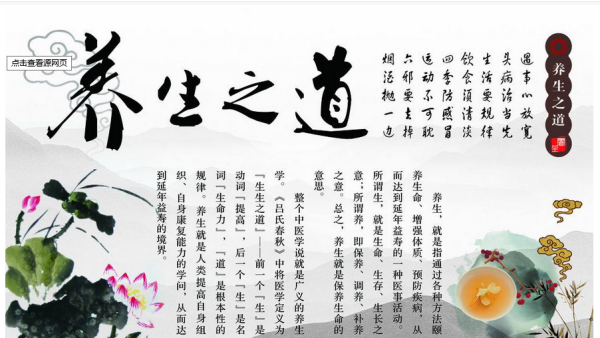 点击查看源网页
养生之道
养生之道
遇事心放宽
头病治当先
生活要规律
饮食须清淡
四季防感冒
运动不可耽
六邪要去掉
烟酒抛一边
养生，就是指通过各种方法颐
养生命、增强体质、预防疾病，从
而达到延年益寿的一种医事活动。
所谓生，就是生命、生存、生长之
意；所谓养，即保养、调养、补养
之意。总之，养生就是保养生命的
意思。
整个中医学说就是广义的养生
学。《吕氏春秋》中将医学定义为
『生生之道』——前一个『生』是
动词『提高』，后一个『生』是名
词『生命力』，『道』是根本性的
规律。养生就是人类提高自身组
织、自身康复能力的学问，从而达
到延年益寿的境界。